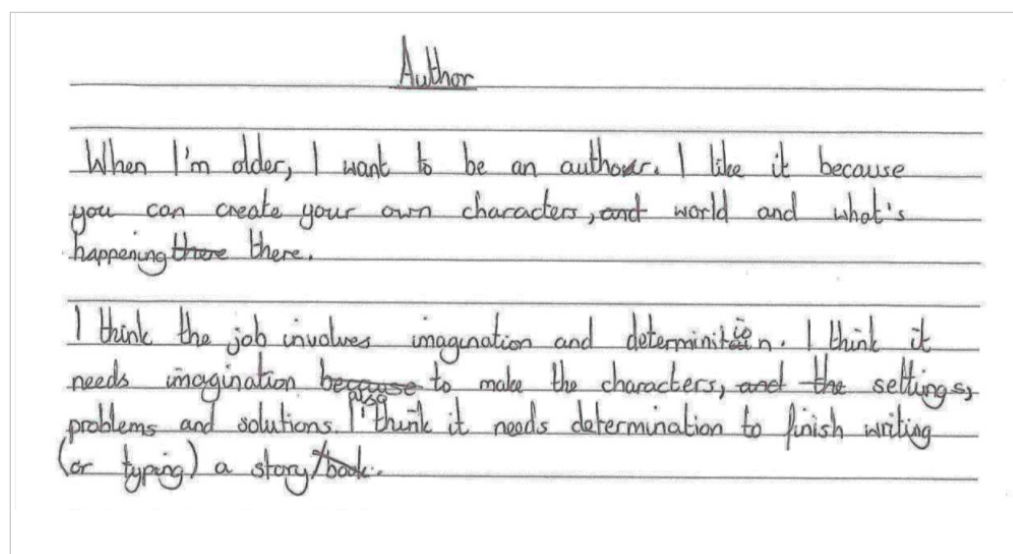 Author
When I'm older, I want to be an author. I like it because
you can create your own characters, and world and what's
happening there there.
I think the job involves imagination and determinitaion. I think it
needs imagination because to make the characters, and the settings,
problems and solutions. I also think it needs determination to finish writing
(or typing) a story/book.